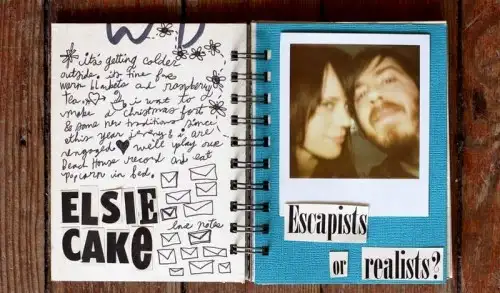 it's getting colder
outside, it's time for
warm blankets and raspberry
tea. i want to
make a Christmas fort
& some new traditions since
this year jeremy & i are
engaged we'll play our
Dead House record and eat
popcorn in bed.
ELSIE
CAKE
love notes
Escapists
or realists?